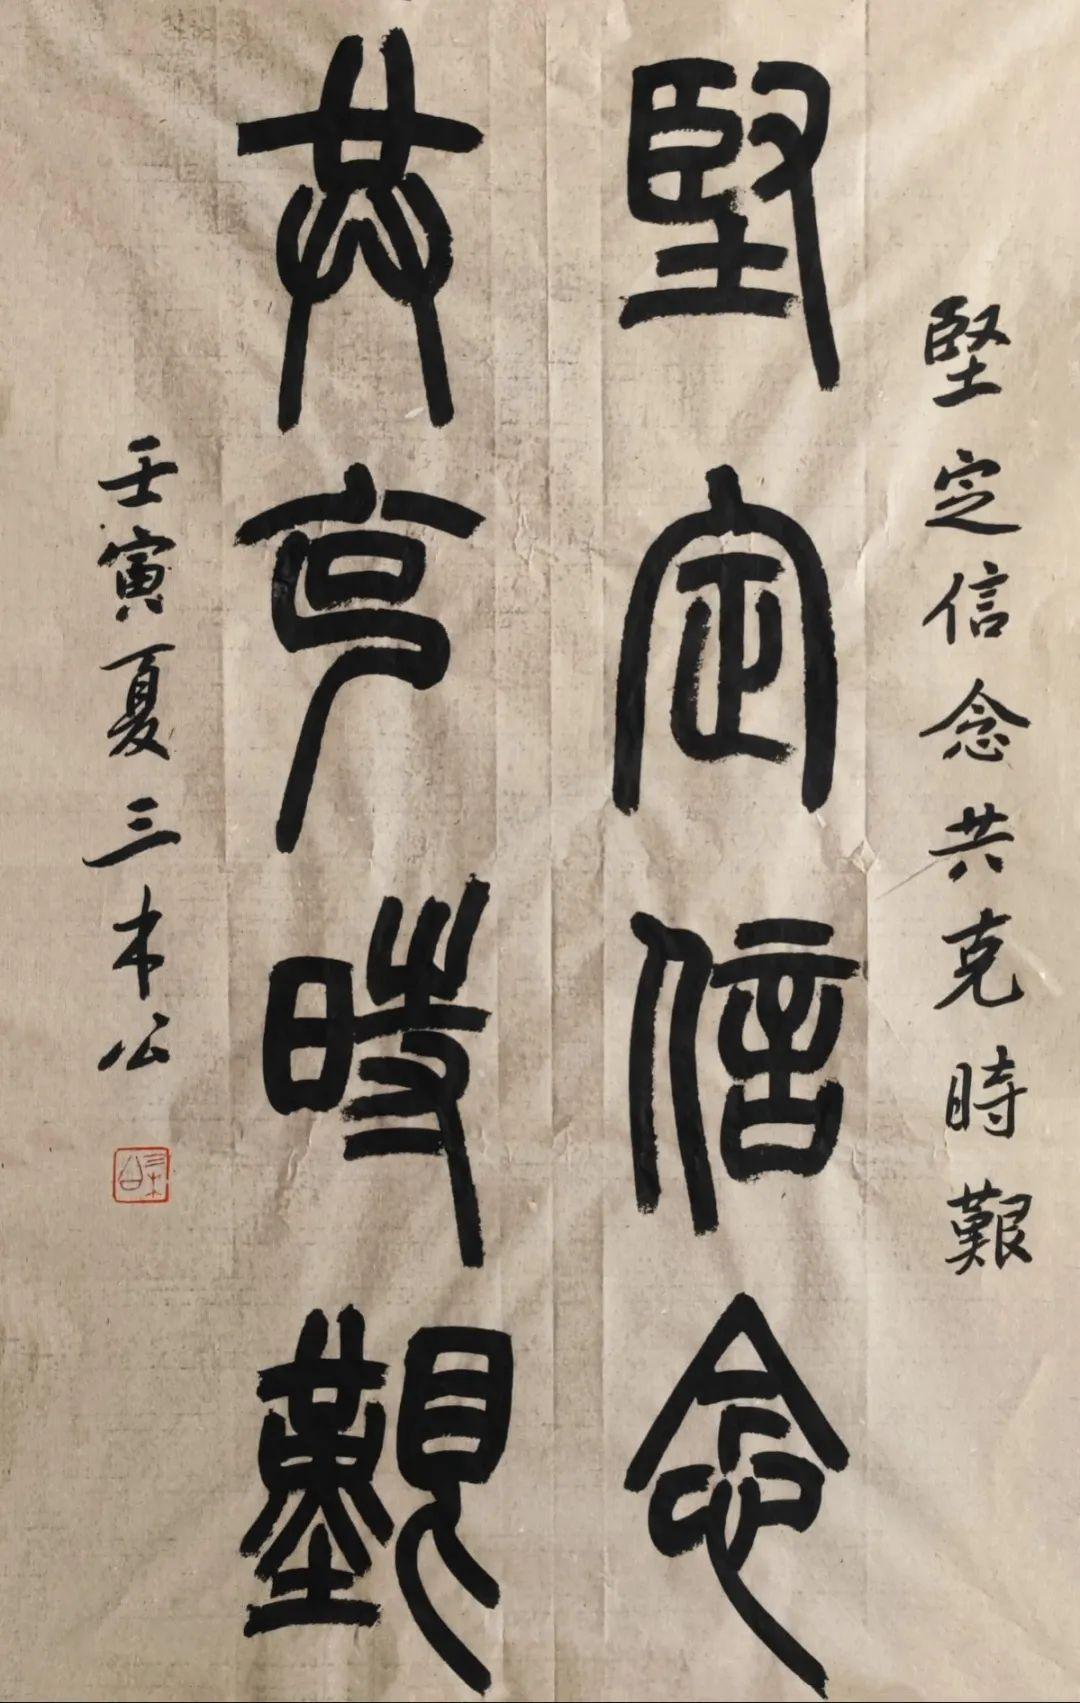 堅定信念共克時艱
堅定信念
共克時艱
壬寅夏三木公
三木公